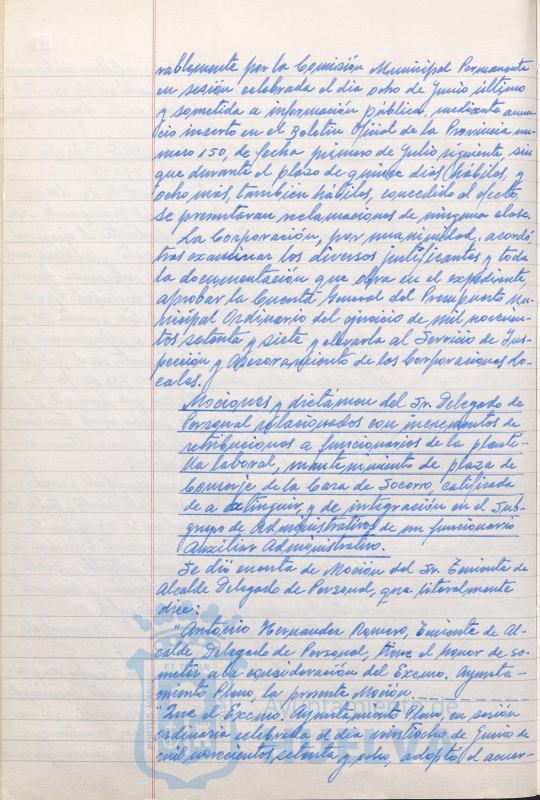 rablemente por la Comisión Municipal Permanente
en sesión celebrada el dia ocho de Junio último
y sometida a información pública, mediante anun-
cio inserto en el Boletín Oficial de la Provincia nú-
mero 150, de fecha primero de Julio siguiente, sin
que durante el plazo de quince dias hábiles, y
ocho mas, tambien hábiles, concedido al efecto,
se presentaran reclamaciones de ninguna clase.
La Corporación, por unanimidad, acordó
tras examinar los diversos justificantes y toda
la documentación que obra en el expediente,
aprobar la Cuenta General del Presupuesto Mu-
nicipal Ordinario del ejercicio de mil novecien-
tos setenta y siete y elevarla al Servicio de Ins-
pección y Asesoramiento de las Corporaciones Lo-
cales.
Mociones y dictámen del Sr. Delegado de
Personal relacionados con incrementos de
retribuciones a funcionarios de la planti-
lla laboral, mantenimiento de plaza de
Conserje de la Casa de Socorro, calificada
de a extinguir, y de integración en el Sub-
grupo de Administrativos de un funcionario
Auxiliar Administrativo.
Se dió cuenta de Moción del Sr. Teniente de
Alcalde Delegado de Personal, que literalmente
dice:
"Antonio Hernandez Romero, Teniente de Al-
calde Delegado de Personal, tiene el honor de so-
meter a la consideración del Excmo. Ayunta-
miento Pleno, la presente Moción.
"Que el Excmo. Ayuntamiento Pleno, en sesión
ordinaria celebrada el dia veintiocho de Junio de
mil novecientos setenta y ocho, adoptó el acuer-
Ayuntamiento de
HUELVA